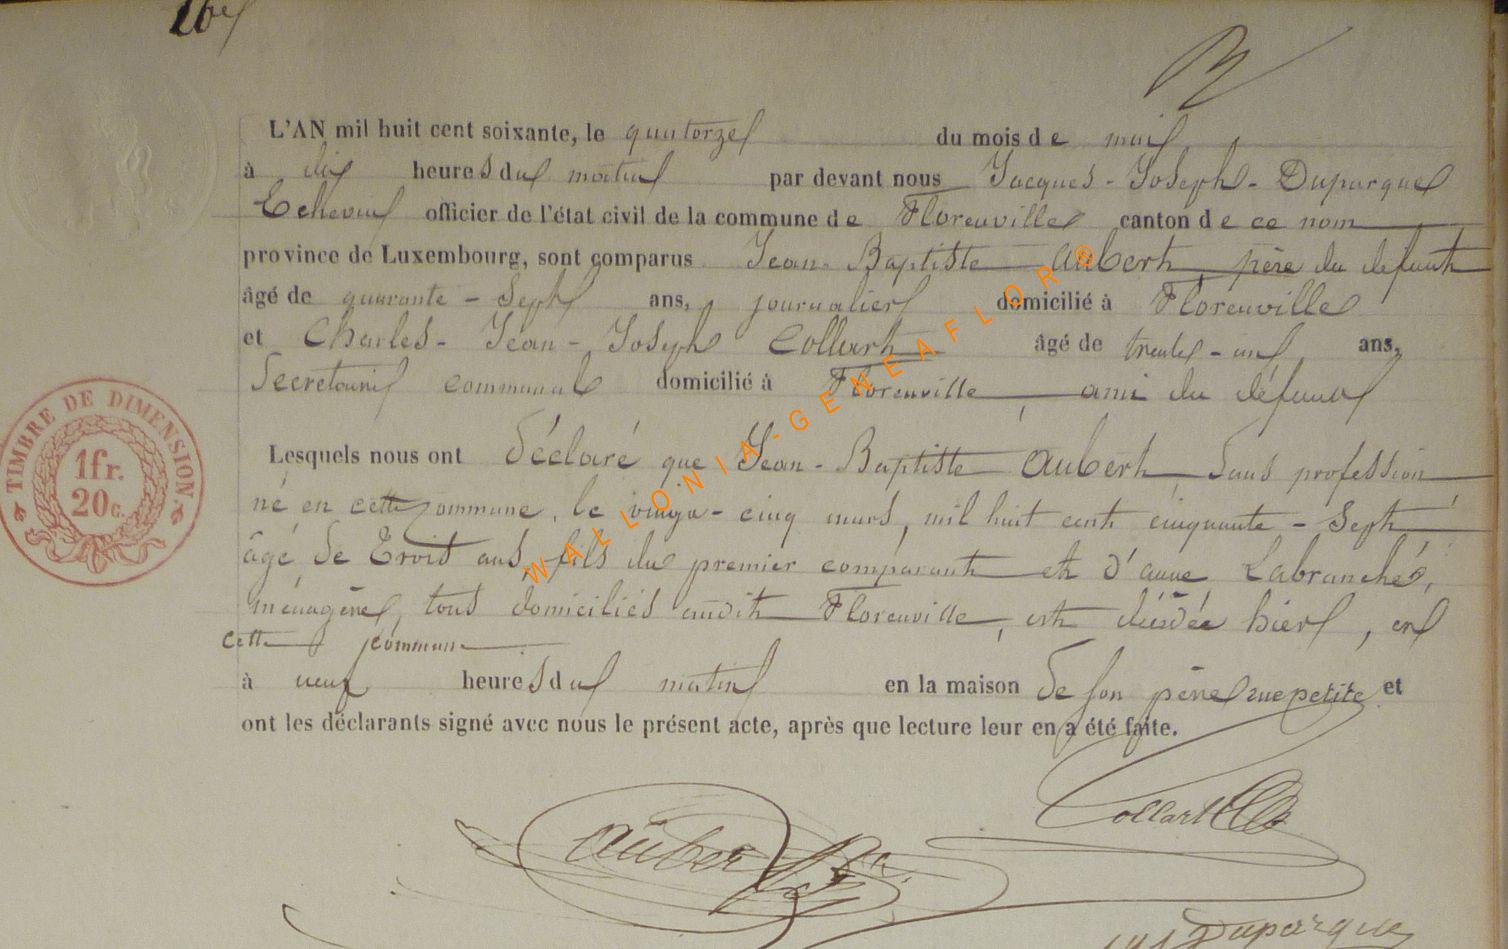 L'AN mil huit cent soixante, le quatorze du mois de mai
à dix heures du matin par devant nous Jacques-Joseph-Duparque
Echevin officier de l'état civil de la commune de Florenville canton de ce nom
province de Luxembourg, sont comparus Jean-Baptiste Aubert, père du défunt
âgé de quarante-sept ans, journalier domicilié à Florenville
et Charles-Jean-Joseph Collart âgé de trente-un ans,
Secretaire communal domicilié à Florenville ami du défunt
Lesquels nous ont déclaré que Jean-Baptiste Aubert sans profession
né en cette commune, le vingt-cinq mars, mil huit cent cinquante-sept
âgé de Trois ans, fils du premier comparant et d'anne Labranche,
ménagère, tous domiciliés audit Florenville, est décédé hier, en
cette commune
à neuf heures du matin en la maison de son père rue petite et
ont les déclarants signé avec nous le présent acte, après que lecture leur en a été faite.
TIMBRE DE DIMENSION.
1fr.
20c.
WALLONIA-GENEAFLOR®
Collart
Aubert
Duparque